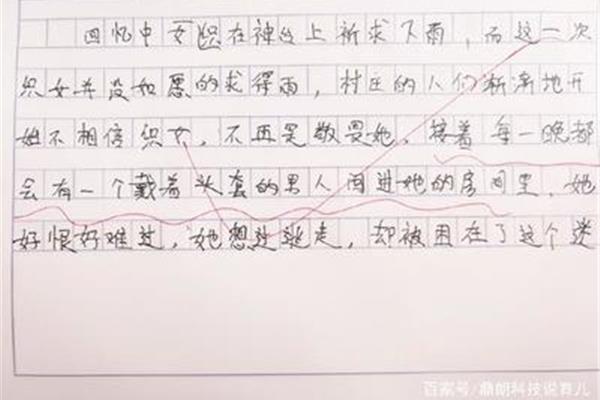 回忆中女织在神台上祈求下雨，而这一次
织女并没如愿的求得雨，村庄的人们渐渐地开
始不相信织女，不再是敬畏她，接着每一晚都
会有一个戴着头套的男人闯进她的房间里，她
好恨好难过，她想过逃走，却被困在了这个迷
百家号/鼎朗科技说育儿